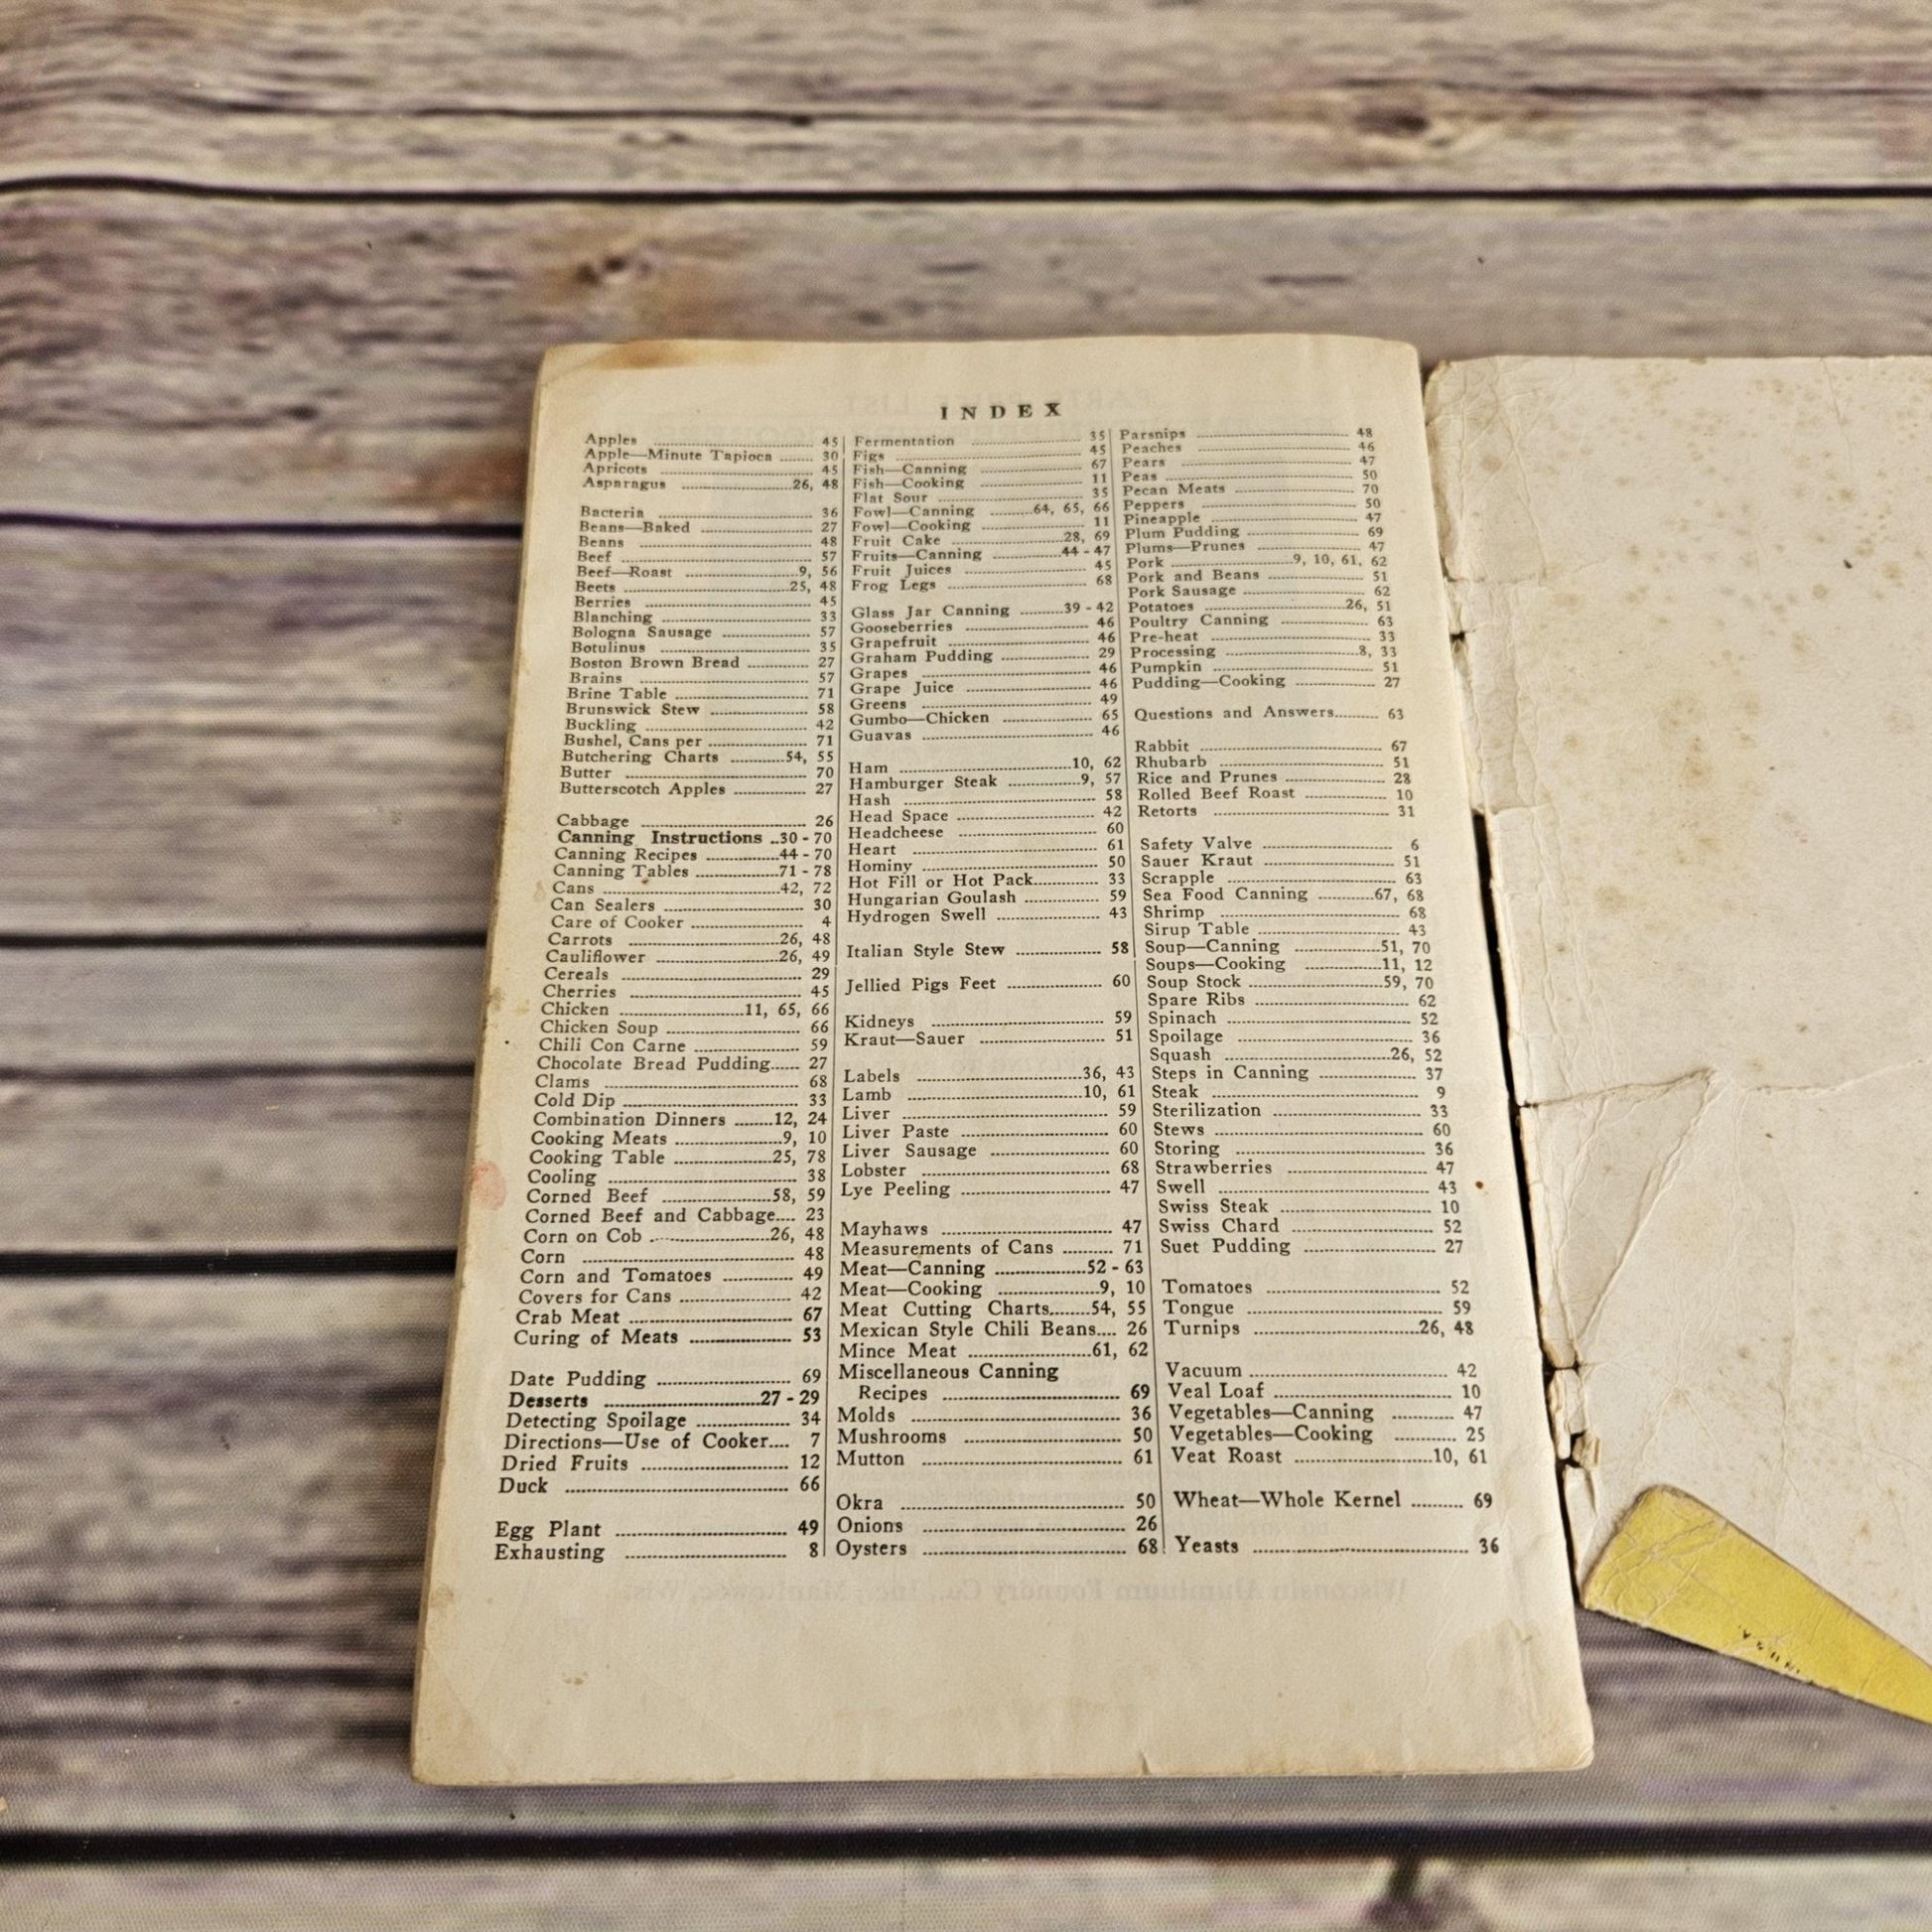 INDEX
Apples 45
Apple—Minute Tapioca 30
Apricots 45
Asparagus 26, 48
Bacteria 36
Beans—Baked 27
Beans 48
Beef 57
Beef—Roast 9, 56
Beets 25, 48
Berries 45
Blanching 33
Bologna Sausage 57
Botulinus 35
Boston Brown Bread 27
Brains 57
Brine Table 71
Brunswick Stew 58
Buckling 42
Bushel, Cans per 71
Butchering Charts 54, 55
Butter 70
Butterscotch Apples 27
Cabbage 26
Canning Instructions 30 - 70
Canning Recipes 44 - 70
Canning Tables 71 - 78
Cans 42, 72
Can Sealers 30
Care of Cooker 4
Carrots 26, 48
Cauliflower 26, 49
Cereals 29
Cherries 45
Chicken 11, 65, 66
Chicken Soup 66
Chili Con Carne 59
Chocolate Bread Pudding 27
Clams 68
Cold Dip 33
Combination Dinners 12, 24
Cooking Meats 9, 10
Cooking Table 25, 78
Cooling 38
Corned Beef 58, 59
Corned Beef and Cabbage 23
Corn on Cob 26, 48
Corn 48
Corn and Tomatoes 49
Covers for Cans 42
Crab Meat 67
Curing of Meats 53
Date Pudding 69
Desserts 27 - 29
Detecting Spoilage 34
Directions—Use of Cooker 7
Dried Fruits 12
Duck 66
Egg Plant 49
Exhausting 8
Fermentation 35
Figs 45
Fish—Canning 67
Fish—Cooking 11
Flat Sour 35
Fowl—Canning 64, 65, 66
Fowl—Cooking 11
Fruit Cake 28, 69
Fruits—Canning 44 - 47
Fruit Juices 45
Frog Legs 68
Glass Jar Canning 39 - 42
Gooseberries 46
Grapefruit 46
Graham Pudding 29
Grapes 46
Grape Juice 46
Greens 49
Gumbo—Chicken 65
Guavas 46
Ham 10, 62
Hamburger Steak 9, 57
Hash 58
Head Space 42
Headcheese 60
Heart 61
Hominy 50
Hot Fill or Hot Pack 33
Hungarian Goulash 59
Hydrogen Swell 43
Italian Style Stew 58
Jellied Pigs Feet 60
Kidneys 59
Kraut—Sauer 51
Labels 36, 43
Lamb 10, 61
Liver 59
Liver Paste 60
Liver Sausage 60
Lobster 68
Lye Peeling 47
Mayhaws 47
Measurements of Cans 71
Meat—Canning 52 - 63
Meat—Cooking 9, 10
Meat Cutting Charts 54, 55
Mexican Style Chili Beans 26
Mince Meat 61, 62
Miscellaneous Canning
Recipes 69
Molds 36
Mushrooms 50
Mutton 61
Okra 50
Onions 26
Oysters 68
Parsnips 48
Peaches 46
Pears 47
Peas 50
Pecan Meats 70
Peppers 50
Pineapple 47
Plum Pudding 69
Plums—Prunes 47
Pork 9, 10, 61, 62
Pork and Beans 51
Pork Sausage 62
Potatoes 26, 51
Poultry Canning 63
Pre-heat 33
Processing 8, 33
Pumpkin 51
Pudding—Cooking 27
Questions and Answers 63
Rabbit 67
Rhubarb 51
Rice and Prunes 28
Rolled Beef Roast 10
Retorts 31
Safety Valve 6
Sauer Kraut 51
Scrapple 63
Sea Food Canning 67, 68
Shrimp 68
Sirup Table 43
Soup—Canning 51, 70
Soups—Cooking 11, 12
Soup Stock 59, 70
Spare Ribs 62
Spinach 52
Spoilage 36
Squash 26, 52
Steps in Canning 37
Steak 9
Sterilization 33
Stews 60
Storing 36
Strawberries 47
Swell 43
Swiss Steak 10
Swiss Chard 52
Suet Pudding 27
Tomatoes 52
Tongue 59
Turnips 26, 48
Vacuum 42
Veal Loaf 10
Vegetables—Canning 47
Vegetables—Cooking 25
Veat Roast 10, 61
Wheat—Whole Kernel 69
Yeasts 36